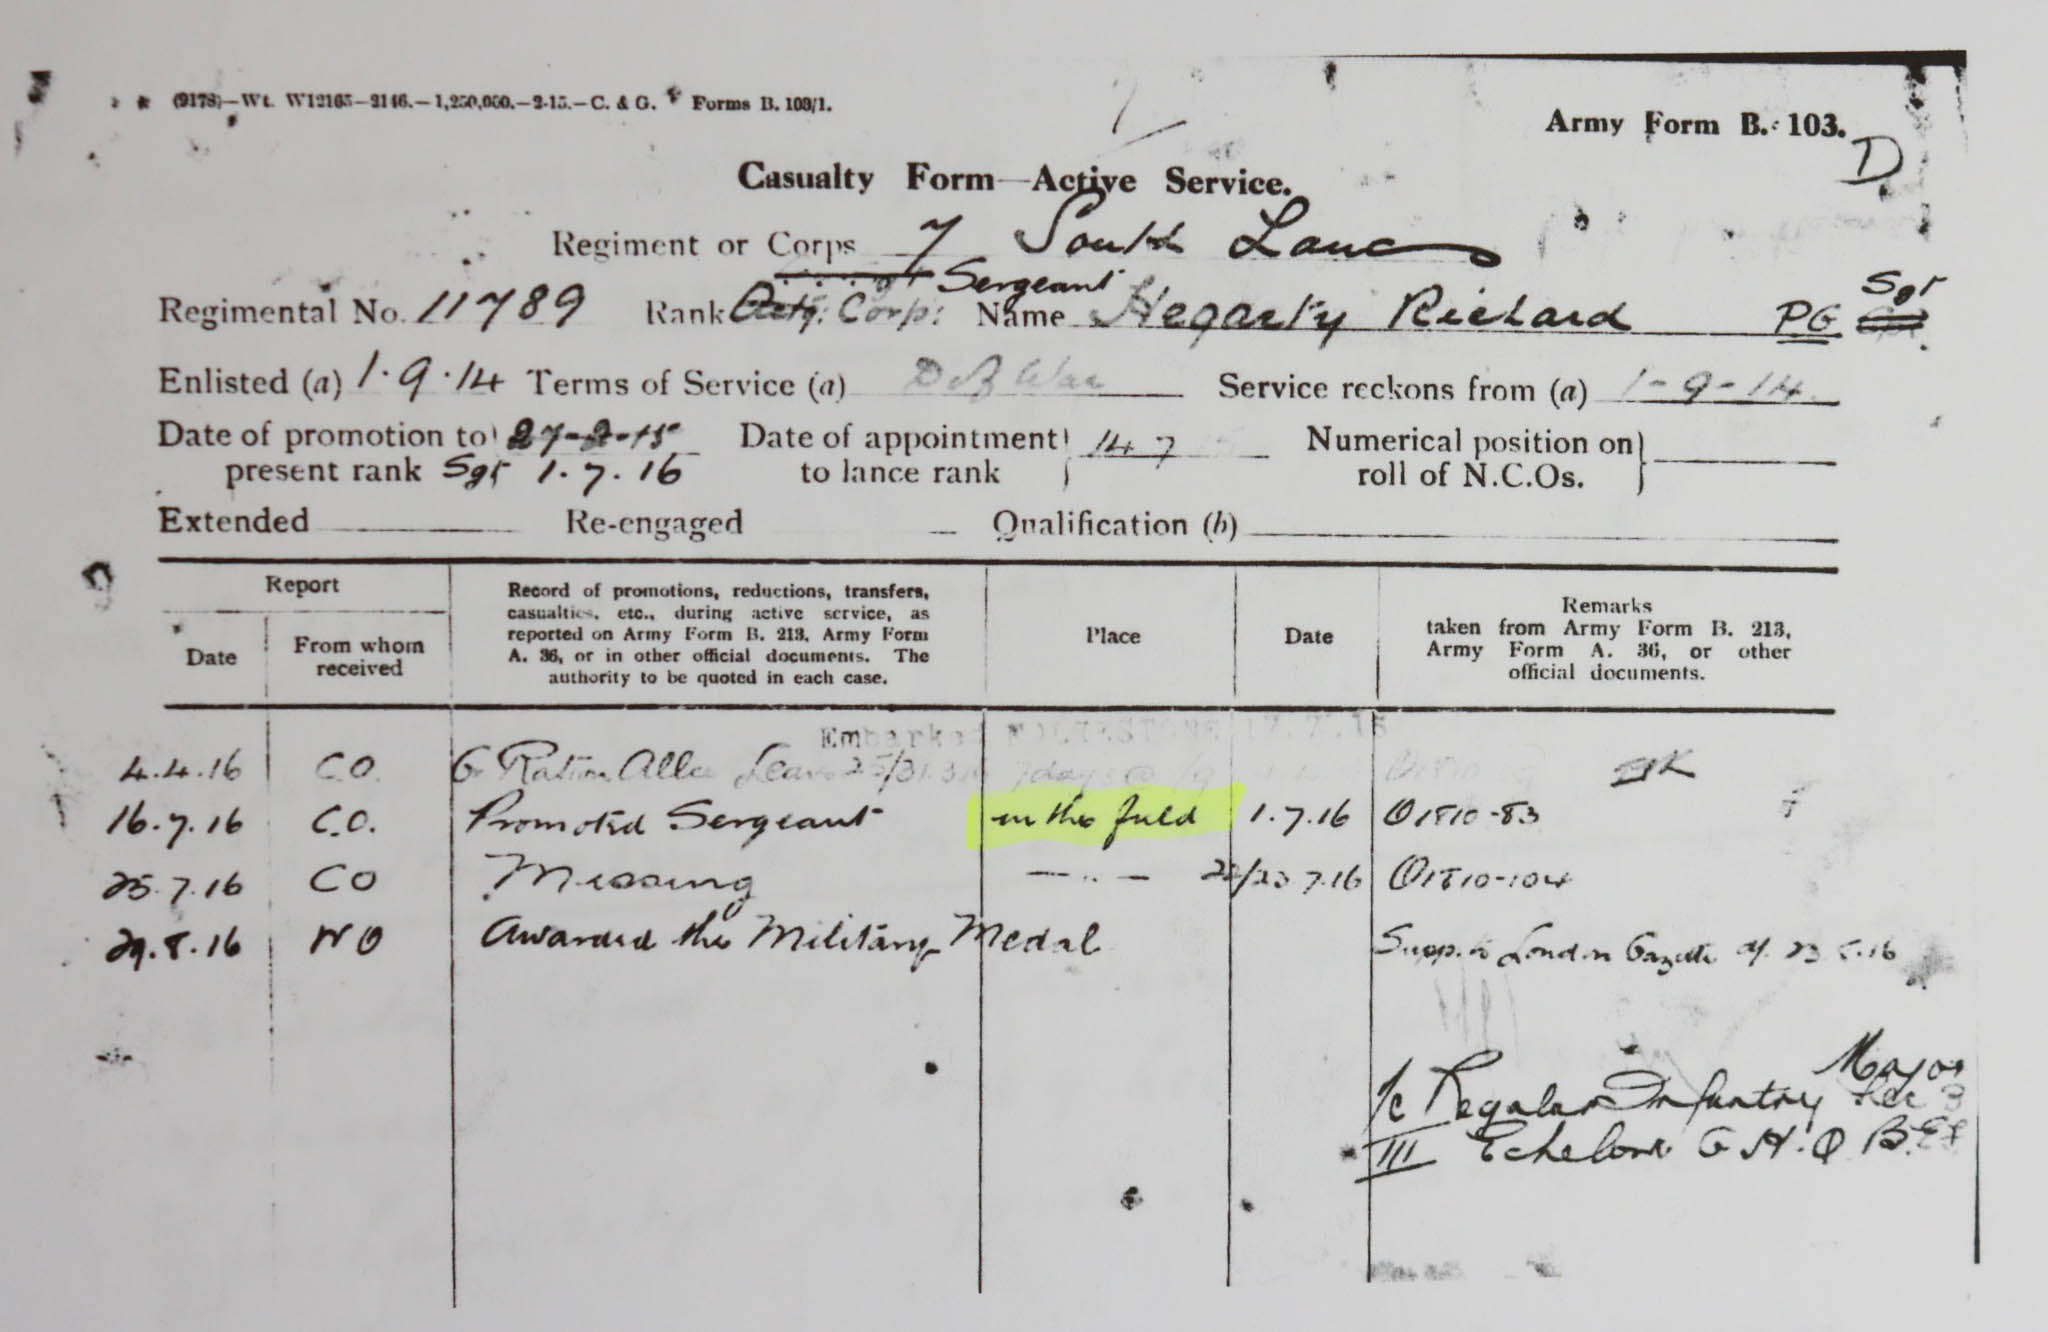 (9178)—Wt. W12165—2146.—1,250,000.—2-15.—C. & G. Forms B. 103/1.
Army Form B. 103.
D
Casualty Form—Active Service.
Regiment or Corps 7 South Lancs
Sergeant
Regimental No. 11789 Rank Actg. Corp: Name Hegarty Richard PG Sgt
Enlisted (a) 1.9.14 Terms of Service (a) D of War Service reckons from (a) 1-9-14
Date of promotion to 27-2-15 Date of appointment 14 7 Numerical position on
present rank Sgt 1.7.16 to lance rank roll of N.C.Os.
Extended Re-engaged Qualification (b)
Report
Date
From whom received
Record of promotions, reductions, transfers,
casualties, etc., during active service, as
reported on Army Form B. 213, Army Form
A. 36, or in other official documents. The
authority to be quoted in each case.
Place
Date
Remarks
taken from Army Form B. 213,
Army Form A. 36, or other
official documents.
Embarked FOLKESTONE 17.7.15
4.4.16 CO. Gr Ration Allce Leave 7 days
16.7.16 C.O. Promoted Sergeant in the field 1.7.16 O1810-83
25.7.16 CO Missing — .. — 22/23.7.16 O1810-104
29.8.16 WO Awarded the Military Medal Supp. to London Gazette of 23 8.16
Major
I/c Regular Infantry Sec 3
III Echelon G.H.Q B.E.F